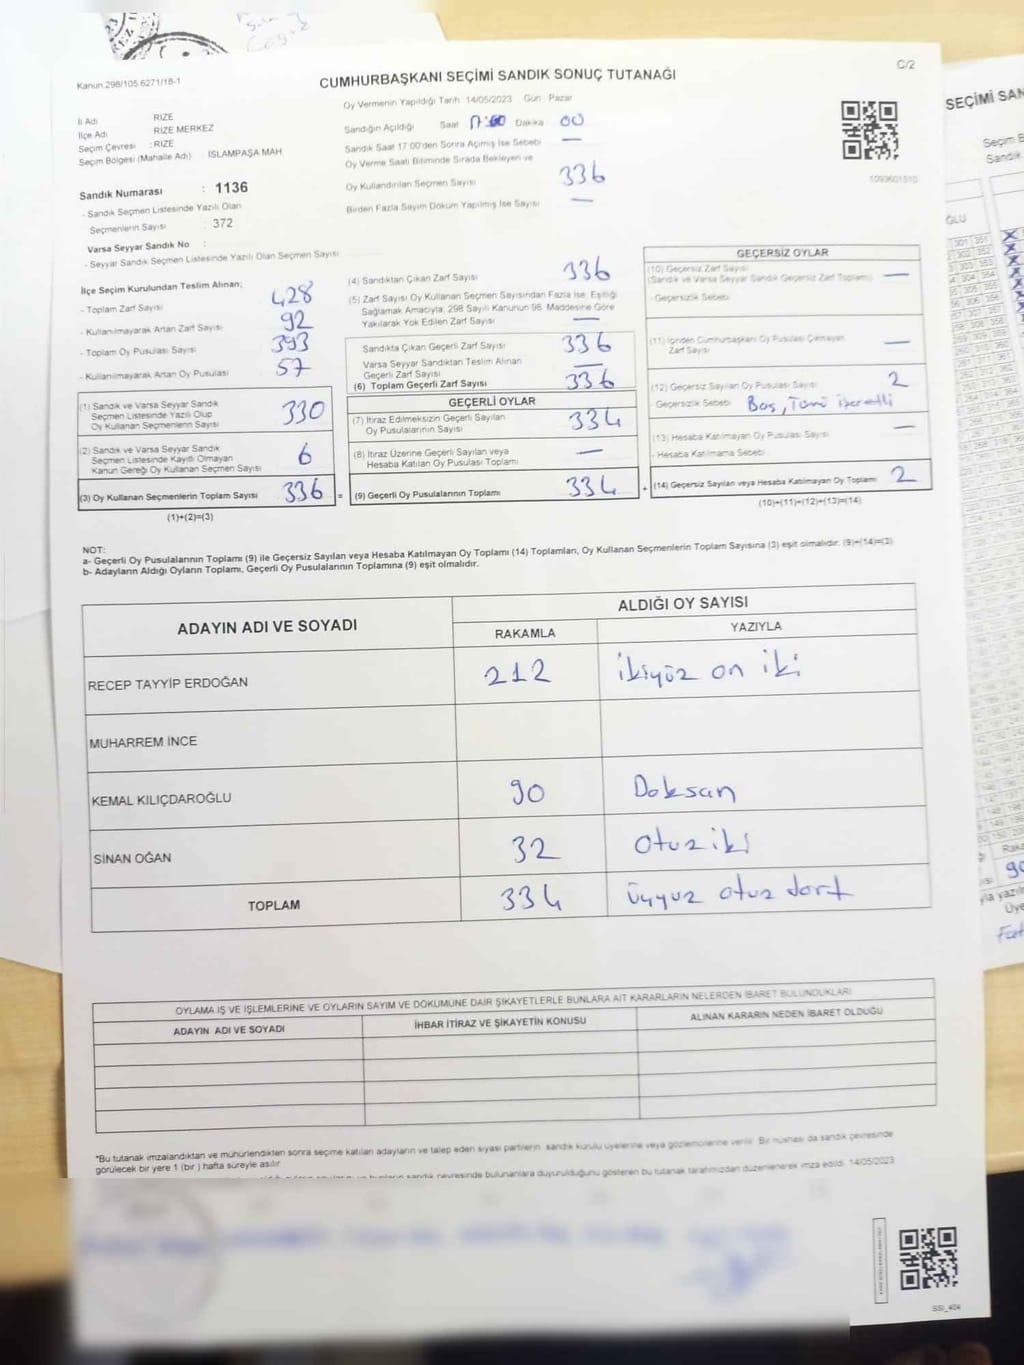 C/2
Kanun.298/105.6271/18-1
CUMHURBAŞKANI SEÇİMİ SANDIK SONUÇ TUTANAĞI
Oy Vermenin Yapıldığı Tarih 14/05/2023 Gün Pazar
İl Adı RİZE
İlçe Adı RİZE MERKEZ
Seçim Çevresi : RİZE
Seçim Bölgesi (Mahalle Adı) İSLAMPAŞA MAH
Sandık Numarası : 1136
- Sandık Seçmen Listesinde Yazılı Olan
Seçmenlerin Sayısı : 372
Varsa Seyyar Sandık No :
- Seyyar Sandık Seçmen Listesinde Yazılı Olan Seçmen Sayısı
Sandığın Açıldığı Saat 17:00 Dakika 00
Sandık Saat 17.00'den Sonra Açılmış İse Sebebi —
Oy Verme Saati Bitiminde Sırada Bekleyen ve
Oy Kullandırılan Seçmen Sayısı 336
Birden Fazla Sayım Döküm Yapılmış İse Sayısı —
1093601510
İlçe Seçim Kurulundan Teslim Alınan;
- Toplam Zarf Sayısı 428
- Kullanılmayarak Artan Zarf Sayısı 92
- Toplam Oy Pusulası Sayısı 393
- Kullanılmayarak Artan Oy Pusulası 57
(1) Sandık ve Varsa Seyyar Sandık
Seçmen Listesinde Yazılı Olup
Oy Kullanan Seçmenlerin Sayısı 330
(2) Sandık ve Varsa Seyyar Sandık
Seçmen Listesinde Kayıtlı Olmayan
Kanun Gereği Oy Kullanan Seçmen Sayısı 6
(3) Oy Kullanan Seçmenlerin Toplam Sayısı 336 =
(1)+(2)=(3)
(4) Sandıktan Çıkan Zarf Sayısı 336
(5) Zarf Sayısı Oy Kullanan Seçmen Sayısından Fazla İse, Eşitliği
Sağlamak Amacıyla, 298 Sayılı Kanunun 98. Maddesine Göre
Yakılarak Yok Edilen Zarf Sayısı —
Sandıkta Çıkan Geçerli Zarf Sayısı 336
Varsa Seyyar Sandıktan Teslim Alınan
Geçerli Zarf Sayısı —
(6) Toplam Geçerli Zarf Sayısı 336
GEÇERLİ OYLAR
(7) İtiraz Edilmeksizin Geçerli Sayılan
Oy Pusulalarının Sayısı 334
(8) İtiraz Üzerine Geçerli Sayılan veya
Hesaba Katılan Oy Pusulası Toplamı —
(9) Geçerli Oy Pusulalarının Toplamı 334 +
GEÇERSİZ OYLAR
(10) Geçersiz Zarf Sayısı
(Sandık ve Varsa Seyyar Sandık Geçersiz Zarf Toplamı) —
- Geçersizlik Sebebi
(11) İçinden Cumhurbaşkanı Oy Pusulası Çıkmayan
Zarf Sayısı —
(12) Geçersiz Sayılan Oy Pusulası Sayısı 2
- Geçersizlik Sebebi Boş, Tümü işaretli
(13) Hesaba Katılmayan Oy Pusulası Sayısı —
- Hesaba Katılmama Sebebi
(14) Geçersiz Sayılan veya Hesaba Katılmayan Oy Toplamı 2
(10)+(11)+(12)+(13)=(14)
NOT:
a- Geçerli Oy Pusulalarının Toplamı (9) ile Geçersiz Sayılan veya Hesaba Katılmayan Oy Toplamı (14) Toplamları, Oy Kullanan Seçmenlerin Toplam Sayısına (3) eşit olmalıdır. (9)+(14)=(3)
b- Adayların Aldığı Oyların Toplamı, Geçerli Oy Pusulalarının Toplamına (9) eşit olmalıdır.
ADAYIN ADI VE SOYADI ALDIĞI OY SAYISI
RAKAMLA YAZIYLA
RECEP TAYYİP ERDOĞAN 212 ikiyüz on iki
MUHARREM İNCE
KEMAL KILIÇDAROĞLU 90 Doksan
SİNAN OĞAN 32 Otuziki
TOPLAM 334 üçyüz otuz dört
OYLAMA İŞ VE İŞLEMLERİNE VE OYLARIN SAYIM VE DÖKÜMÜNE DAİR ŞİKAYETLERLE BUNLARA AİT KARARLARIN NELERDEN İBARET BULUNDUKLARI
ADAYIN ADI VE SOYADI İHBAR İTİRAZ VE ŞİKAYETİN KONUSU ALINAN KARARIN NEDEN İBARET OLDUĞU
*Bu tutanak imzalandıktan ve mühürlendikten sonra seçime katılan adayların ve talep eden siyasi partilerin sandık kurulu üyelerine veya gözlemcilerine verilir. Bir nüshası da sandık çevresinde
görülecek bir yere 1 (bir) hafta süreyle asılır
sandık çevresinde bulunanlara duyurulduğunu gösteren bu tutanak tarafımızdan düzenlenerek imza edildi. 14/05/2023
SSİ_404
SEÇİMİ SAN